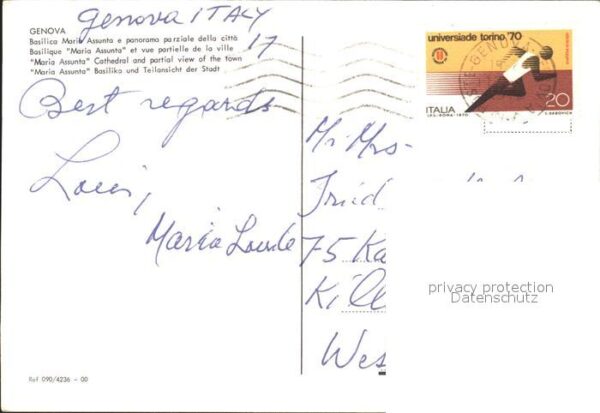 Genova ITALY
17
GENOVA
Basilica Maria Assunta e panorama parziale della città
Basilique "Maria Assunta" et vue partielle de la ville
"Maria Assunta" Cathedral and partial view of the town
"Maria Assunta" Basilika und Teilansicht der Stadt
Best regards
Maria
Ref 090/4236 - 00
universiade torino '70
ITALIA
20
I.P.S.-ROMA-1970
GENOVA
Mr Mrs-
75 Ka
Kill
Wes
privacy protection
Datenschutz